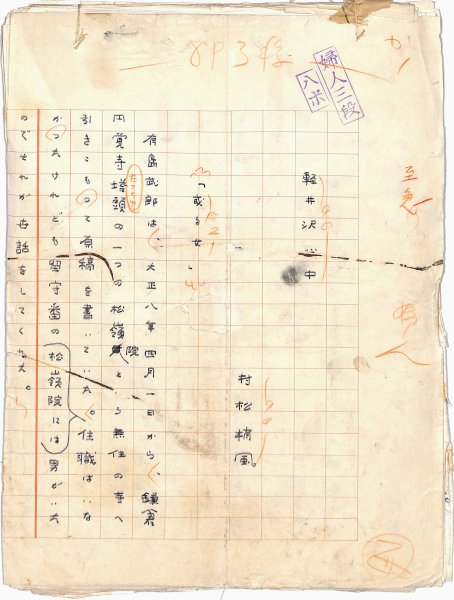 至急
婦人三段
八ポ
軽井沢心中
村松梢風
一
「或る女」
有島武郎は、大正八年四月一日から、鎌倉
円覚寺塔頭の一つの松嶺院という無住の寺へ
たっちゅう
引きこもって原稿を書いていた。住職はいな
かつたけれども留守番の松嶺院には男がいた
のでそれが世話をしてくれた。